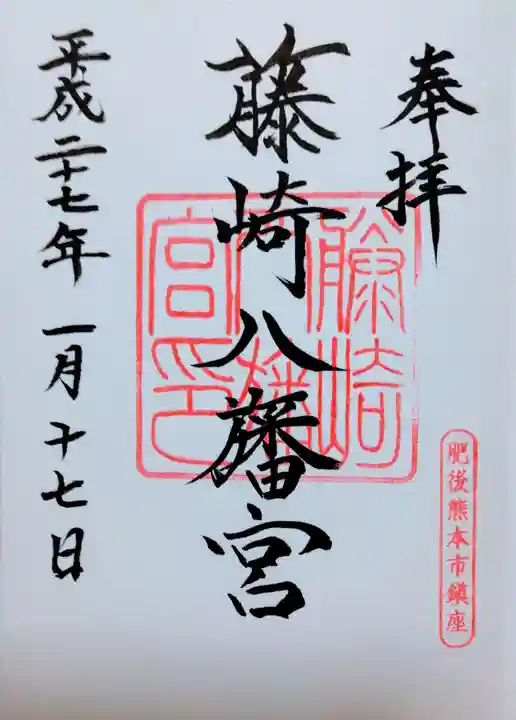 奉拝
肥後熊本市鎮座
藤崎八旛宮
藤崎八旛宮印
平成二十七年一月十七日